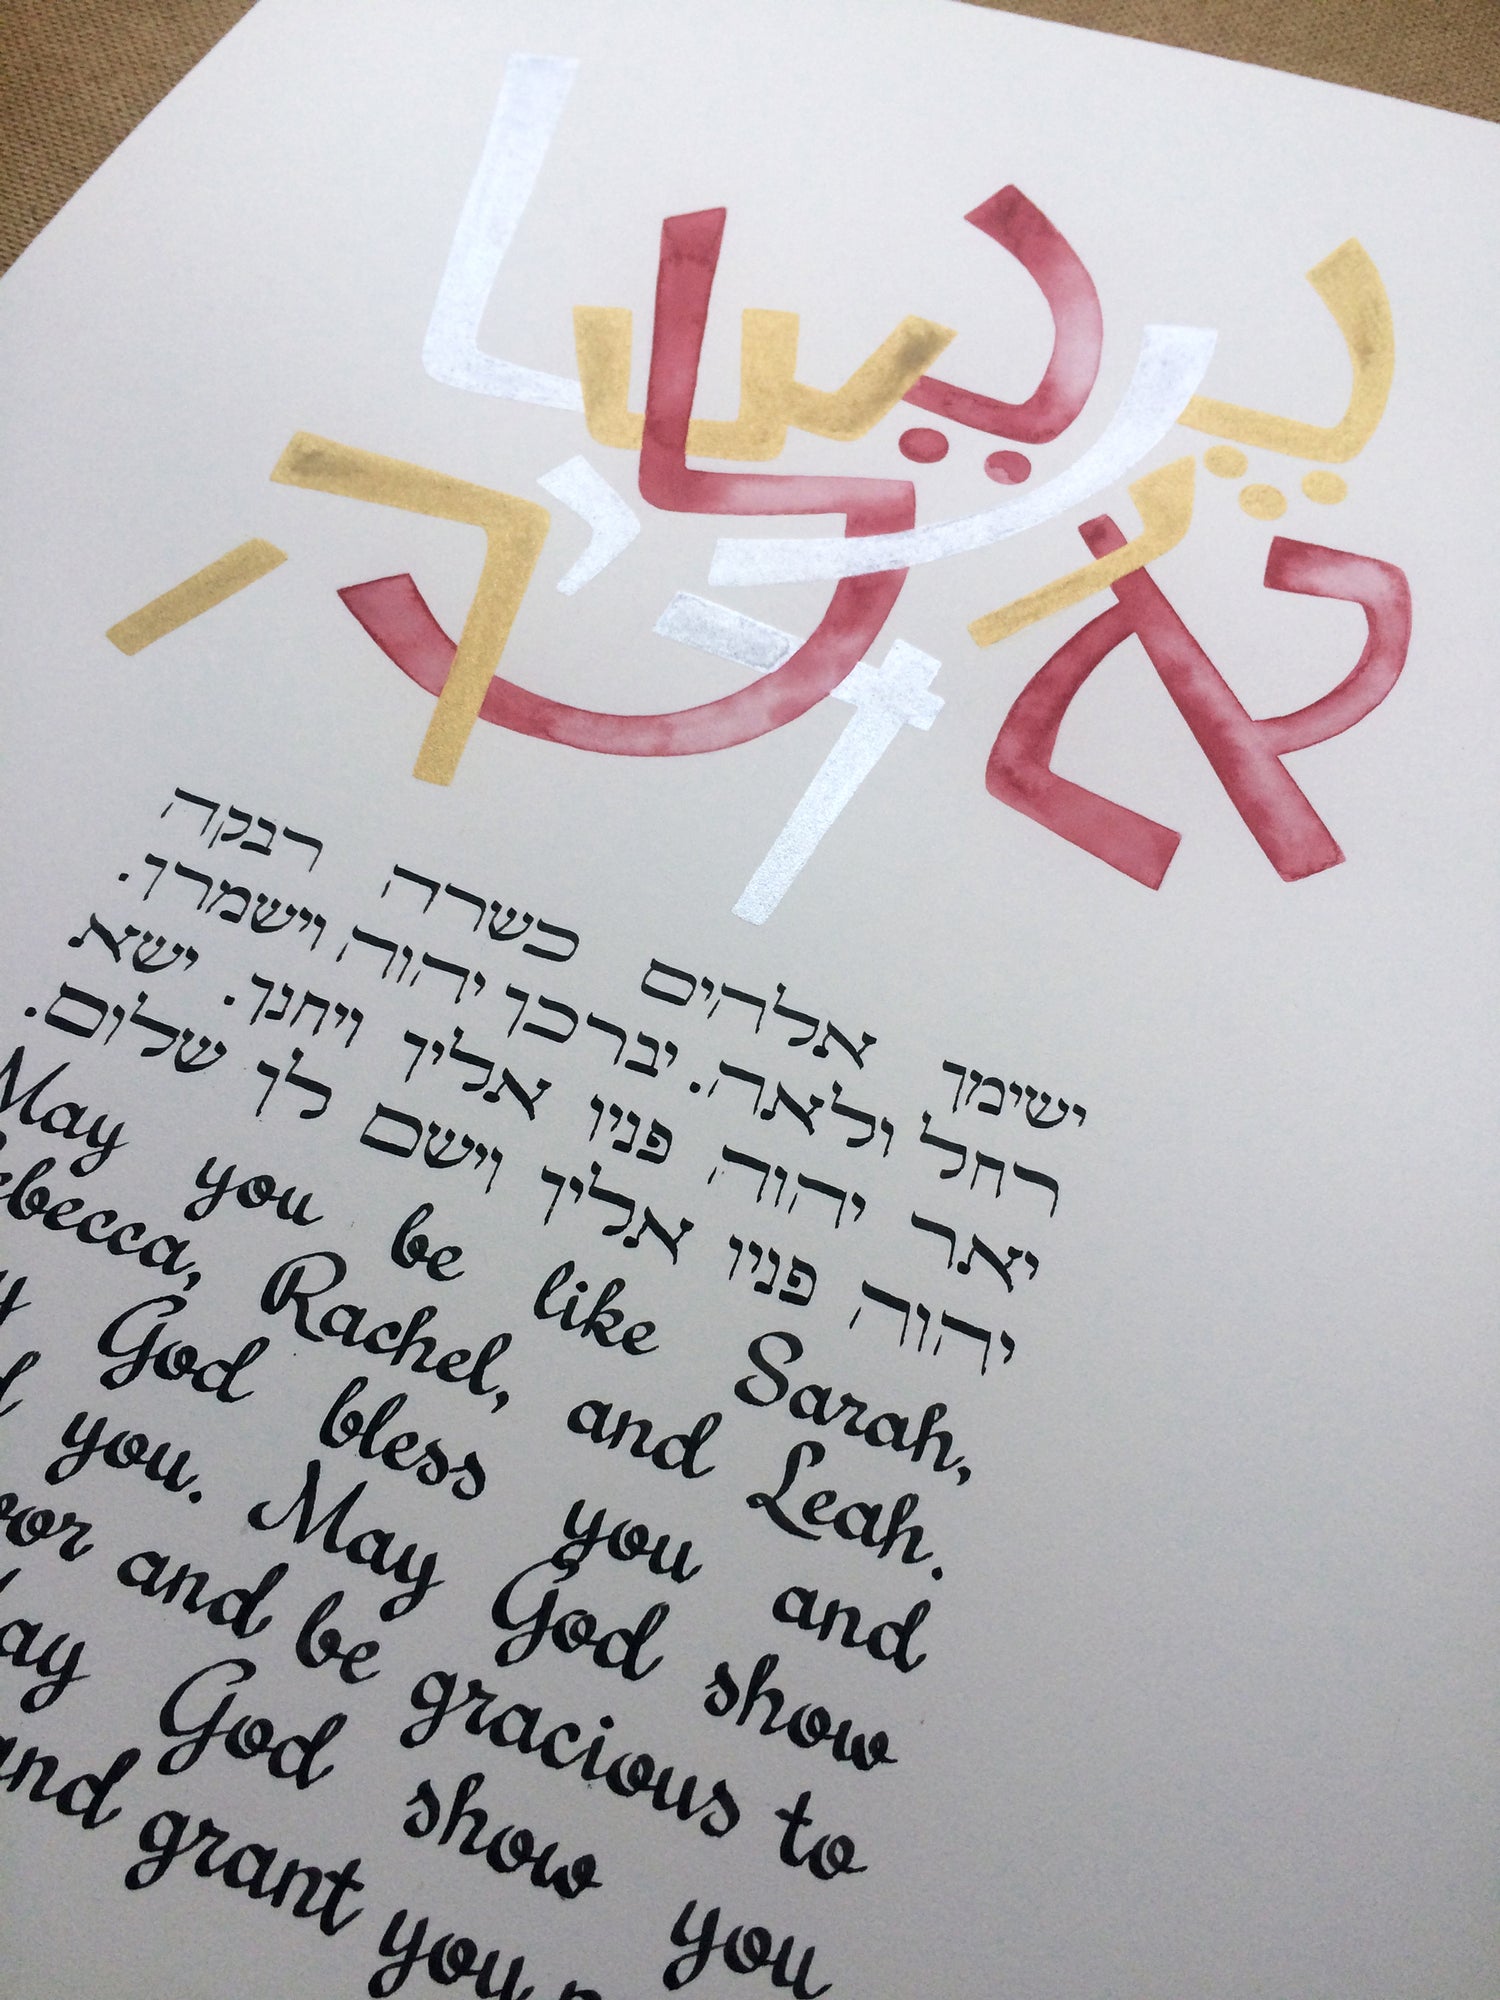 ישימך אלהים כשרה רבקה
רחל ולאה. יברכך יהוה וישמרך.
יאר יהוה פניו אליך ויחנך. ישא
יהוה פניו אליך וישם לך שלום.
May you be like Sarah,
ebecca, Rachel, and Leah.
y God bless you and
d you. May God show
vor and be gracious to
ay God show you
and grant you